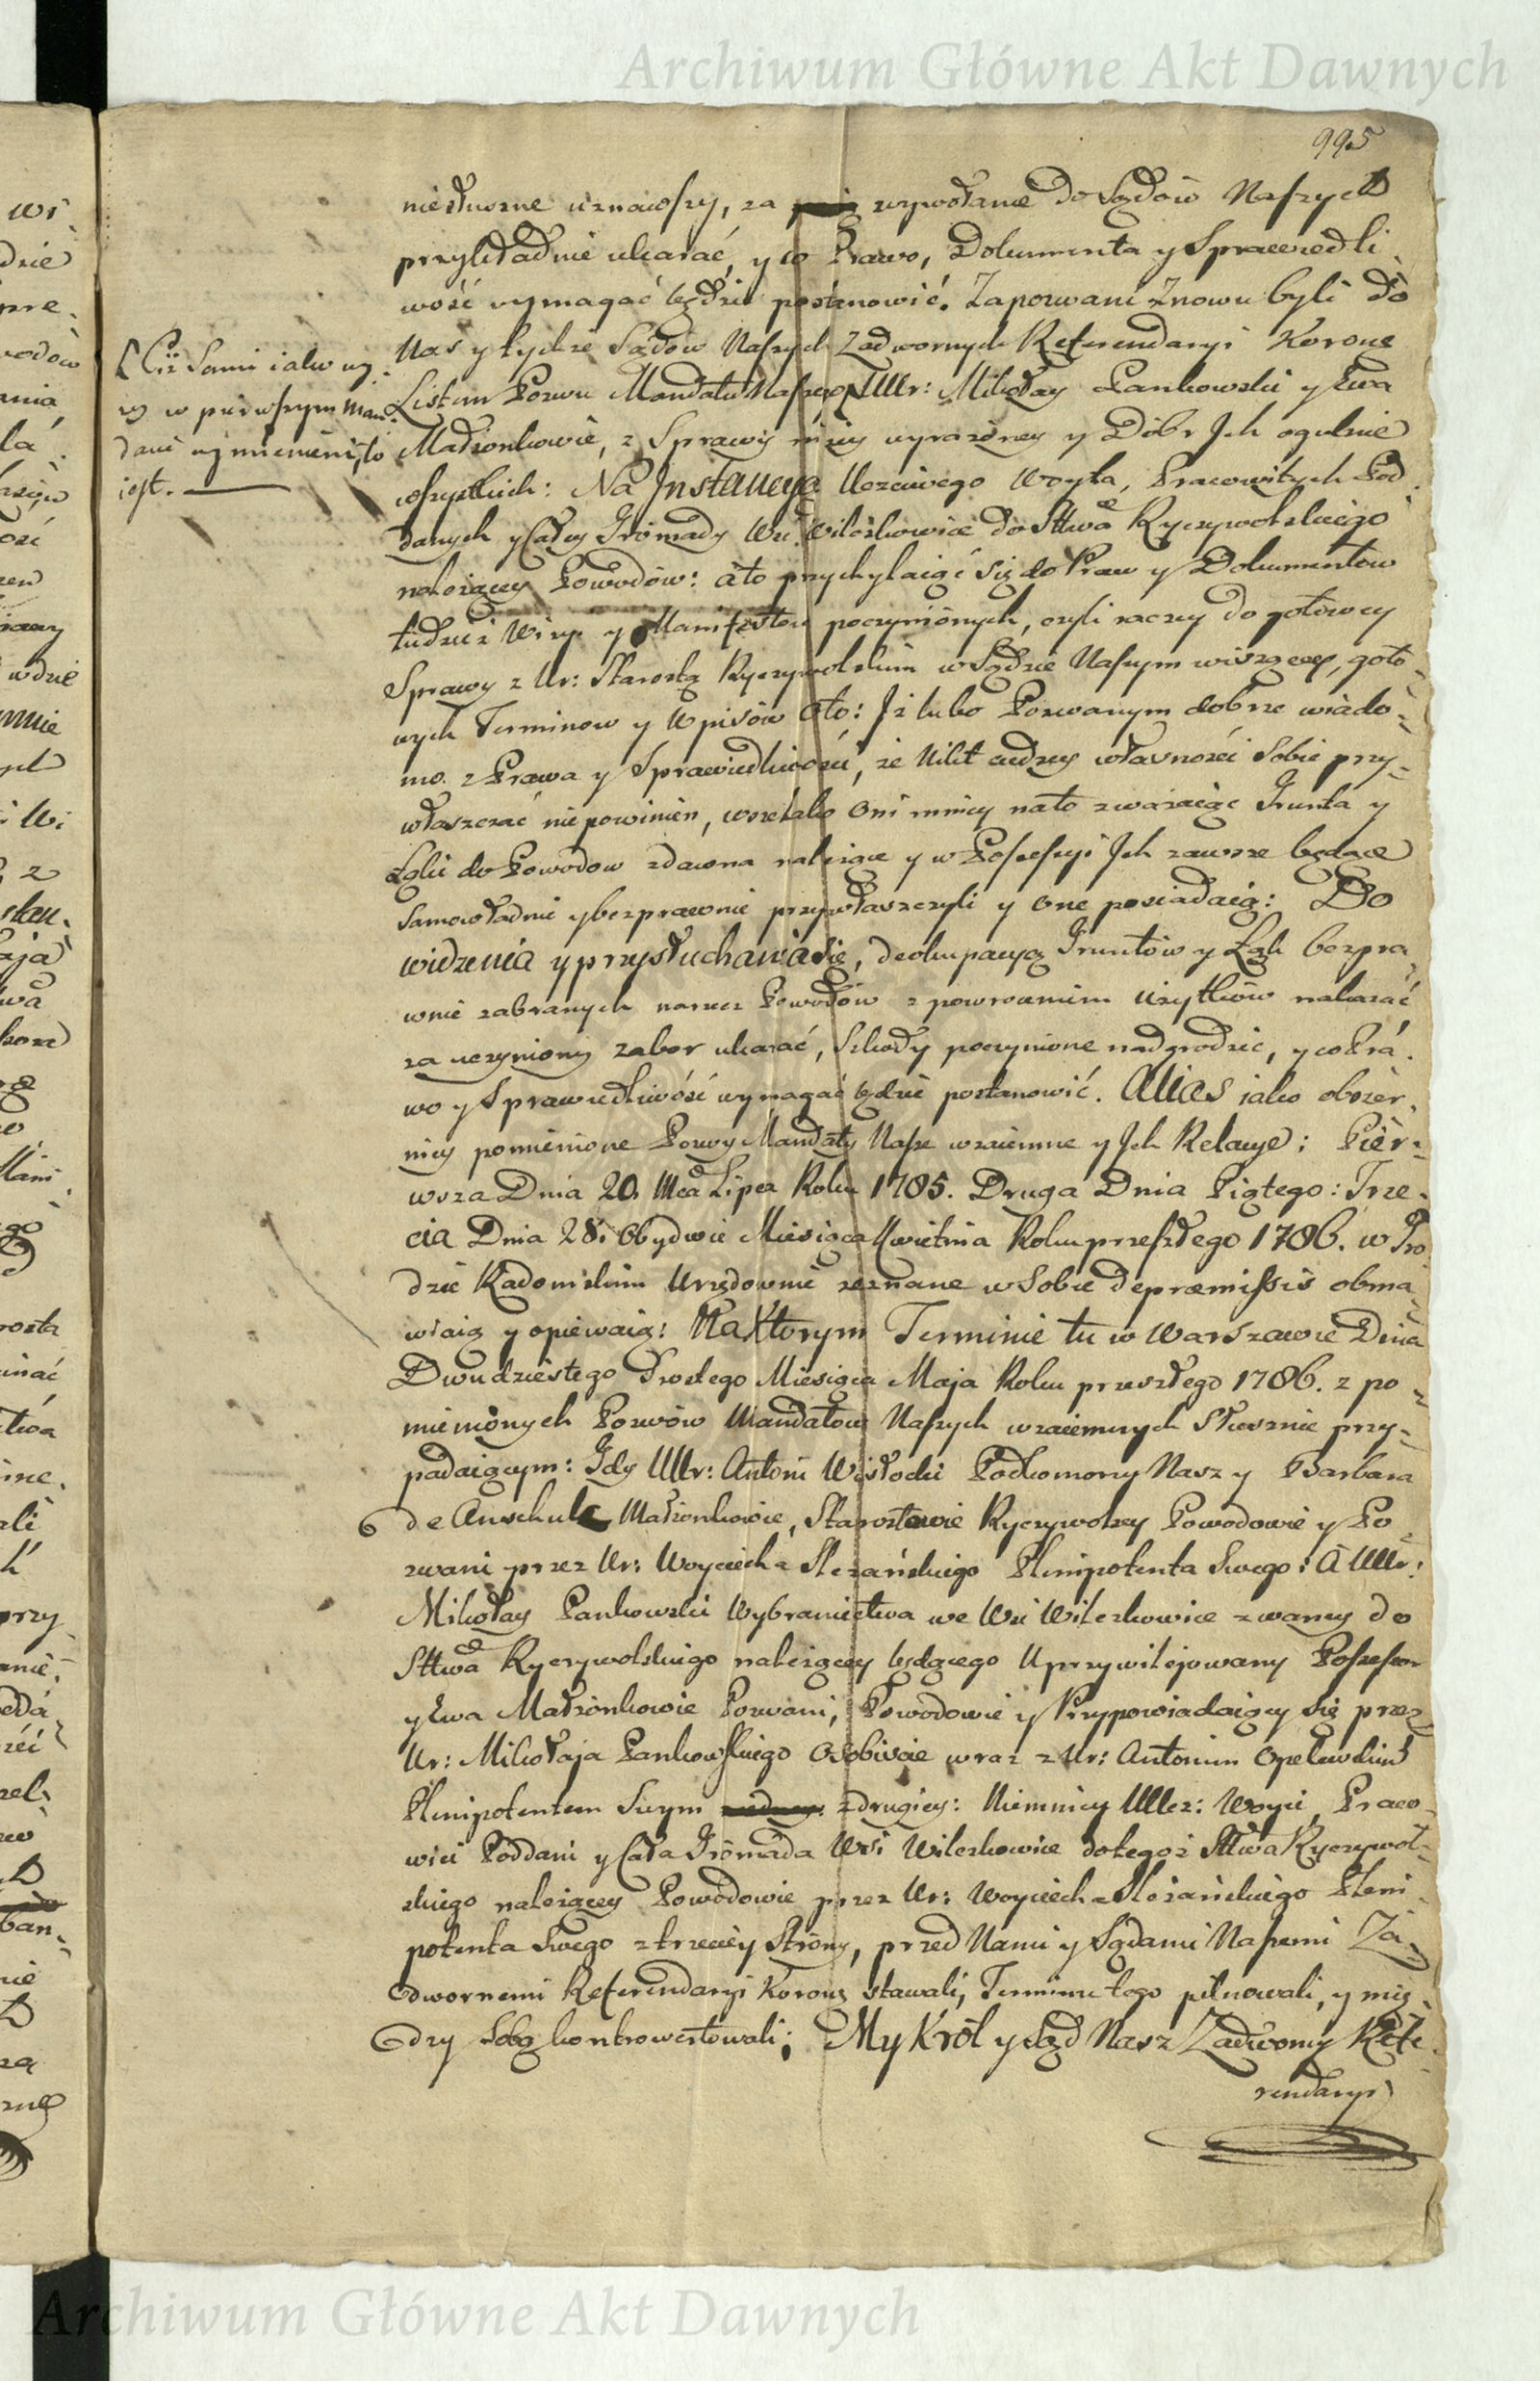 Archiwum Główne Akt Dawnych
995
niesłuszne uznawszy, za wywołanie do Sądów Naszych
przykładnie ukarać, y co Prawo, Dokumenta y Sprawiedli
wość wymagać będzie postanowić. Zapozwani znowu byli do
Nas y tychże Sądów Naszych Zadwornych Referendaryi Koronę
[Ciż Sami jako wy
ży w pierwszym Man
dacie wymienieni, to
iest.
Listem Pozwu Mandatu Naszego UUr: Mikołay Pankowski y Ewa
Małżonkowie, z Sprawy niżey wyrażoney y Dóbr Jch ogulnie
wszystkich: Na Jnstancyą Uczciwego Woyta, Pracowitych Pod
danych y Całey Gromady Wsi Wilczkowice do Sttwa Ryczywolskiego
należącey Powodów: a to przychylaiąc się do Praw y Dokumentów
tudzież Wizyi y Manifestów poczynionych, czyli raczey do gotowey
Sprawy z Ur: Starostą Ryczywolskim w Sądzie Naszym wiszącey, goto
wych Terminow y Wpisów Oto: Jż lubo Pozwanym dobrze wiado
mo z Prawa y Sprawiedliwości, że Nikt cudzey własności Sobie przy
właszczać niepowinien, wszelako Oni mniey nato zważaiąc Grunta y
Łąki do Powodow zdawna należące y w Possessyi Jch zawsze będące
Samowładnie y bezprawnie przywłaszczyli y one posiadaią: Do
widzenia y przysłuchania się, deokupacyą Gruntów y Łąk bezpra
wnie zabranych narzecz Powodów z powróceniem Użytków nakazać
za uczyniony zabor ukarać, Szkody poczynione nadgrodzić, y co Pra
wo y Sprawiedliwość wymagać będzie postanowić. Alias jako obszer
niey pomienione Pozwy Mandaty Nasze wzaiemne y Jch Relacye: Pier
wsza Dnia 20. Mca Lipca Roku 1785. Druga Dnia Piątego: Trze
cia Dnia 28. Obydwie Miesiąca Kwietnia Roku przeszłego 1786. w Gro
dzie Radomskim Urzędownie zeznane w Sobie de præmissis obma
wiaią y opiewaią: Na Ktorym Terminie tu w Warszawie Dnia
Dwudziestego Szostego Miesiąca Maja Roku przeszłego 1786. z po
mienionych Pozwów Mandatów Naszych wzaiemnych Słusznie przy
padaiącym: Gdy UUr: Antoni Wisłocki Podkomorzy Nasz y Barbara
de Małżonkowie, Starostowie Ryczywolscy Powodowie y Po
zwani przez Ur: Woyciecha Slezańskiego Plenipotenta Swego: A UUr:
Mikołay Pankowski Wybraniectwa we Wsi Wilczkowice zwaney do
Sttwa Ryczywolskiego należącey będącego Uprzywilejowany Possessor
y Ewa Małżonkowie Pozwani, Powodowie y Przypowiadaiący się przez
Ur: Mikołaja Pankowskiego Osobiście wraz z Ur: Antonim
Plenipotentem Swym z drugiey: Niemniey Woyt, Praco
wici Poddani y Cała Gromada Wsi Wilczkowice do tegoż Sttwa Ryczywol
skiego należącey Powodowie przez Ur: Woyciecha Slezańskiego Pleni
potenta Swego z trzeciey Strony, przed Nami y Sądami Naszemi Za
dwornemi Referendaryi Korony stawali, Terminu tego pilnowali, y mię
dzy Sobą kontrowertowali; My Król y Sąd Nasz Zadworny Refe
rendaryi
Archiwum Główne Akt Dawnych